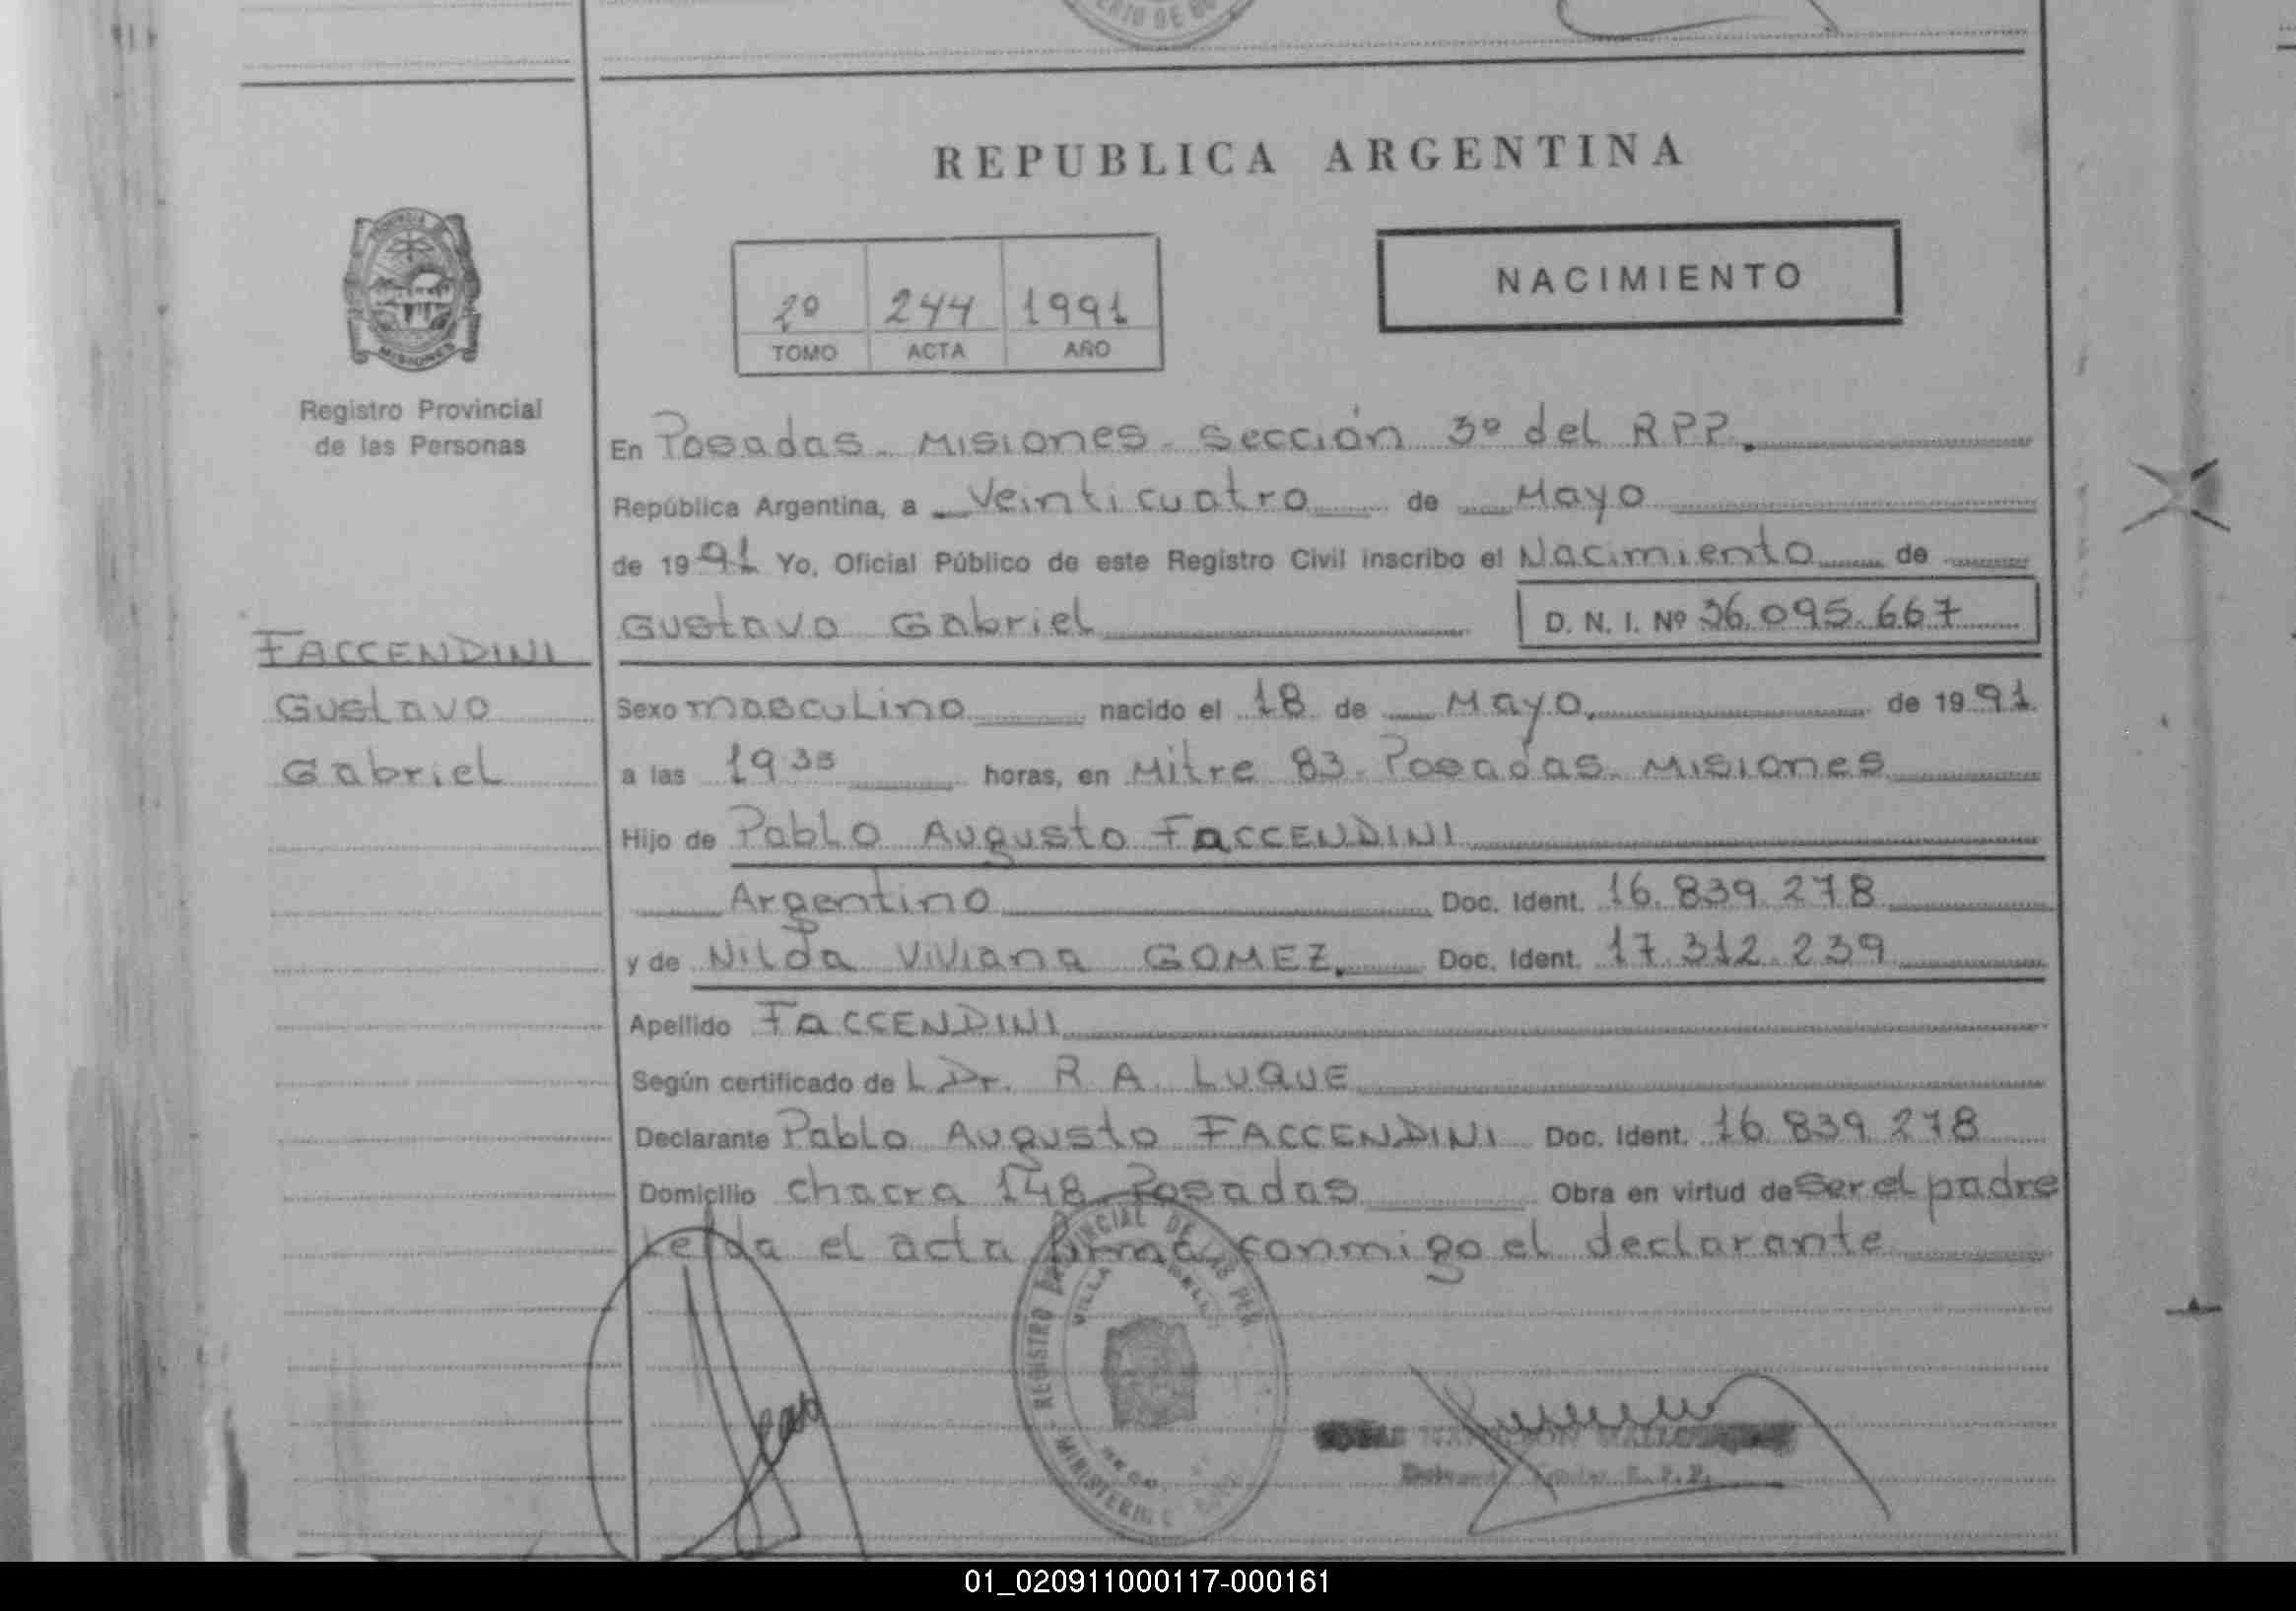 REPUBLICA ARGENTINA
2º 244 1991
TOMO ACTA AÑO
NACIMIENTO
MISIONES
Registro Provincial
de las Personas
FACCENDINI
Gustavo
Gabriel
En Posadas - Misiones - Sección 3º del RPP.
República Argentina, a Veinticuatro de Mayo
de 1991 Yo, Oficial Público de este Registro Civil inscribo el Nacimiento de
Gustavo Gabriel D. N. I. Nº 36.095.667
Sexo masculino nacido el 18 de Mayo. de 1991
a las 19 35 horas, en Mitre 83 - Posadas - Misiones
Hijo de Pablo Augusto FACCENDINI
Argentino Doc. Ident. 16.839.278
y de Nilda Viviana GOMEZ. Doc. Ident. 17.312.239
Apellido FACCENDINI
Según certificado de L Dr. R A LUQUE
Declarante Pablo Augusto FACCENDINI Doc. Ident. 16.839.278
Domicilio chacra 148 - Posadas Obra en virtud de Ser el padre
Leida el acta firma conmigo el declarante
REGISTRO PROVINCIAL DE LAS PER
VILLA
MINISTERIO
01_020911000117-000161